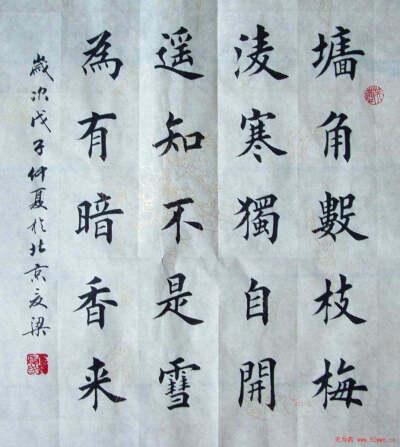 墻角數枝梅
淩寒獨自開
遥知不是雪
為有暗香来
歲次戊子仲夏於北京 梁